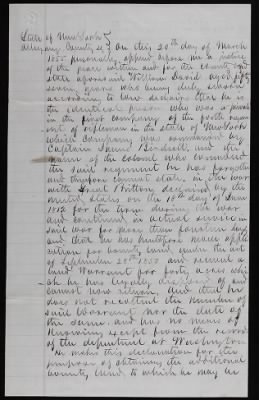 State of New York
Allegany County ss On this 20th day of March
1855 personally appeared before me a Justice
of the peace within and for the County and
State aforesaid William David aged fifty
seven years who being duly sworn
according to law declares that he is
the identical person who was a private
in the first Company of the fourth regim
ent of riflemen in the State of New York
which Company was commanded by
Captain Burdett and the
name of the colonel who commanded
the said regiment he has forgotten
and therefore cannot state, in the war
with Great Britton declared by the
United States on the 18th day of June
1812 for the term during the war
and continued in actual service in
said war for more than fourteen days
and that he has heretofore made appli
cation for bounty land under the act
of September 28th 1850 and received a
land Warrant for forty acres whi
ch he has legally disposed of and
cannot now return and that he
does not recollect the number of
said Warrant nor the date of
the same, and has no means of
knowing except from the record
of the department at Washington
He makes this declaration for the
purpose of obtaining the additional
bounty land to which he may be